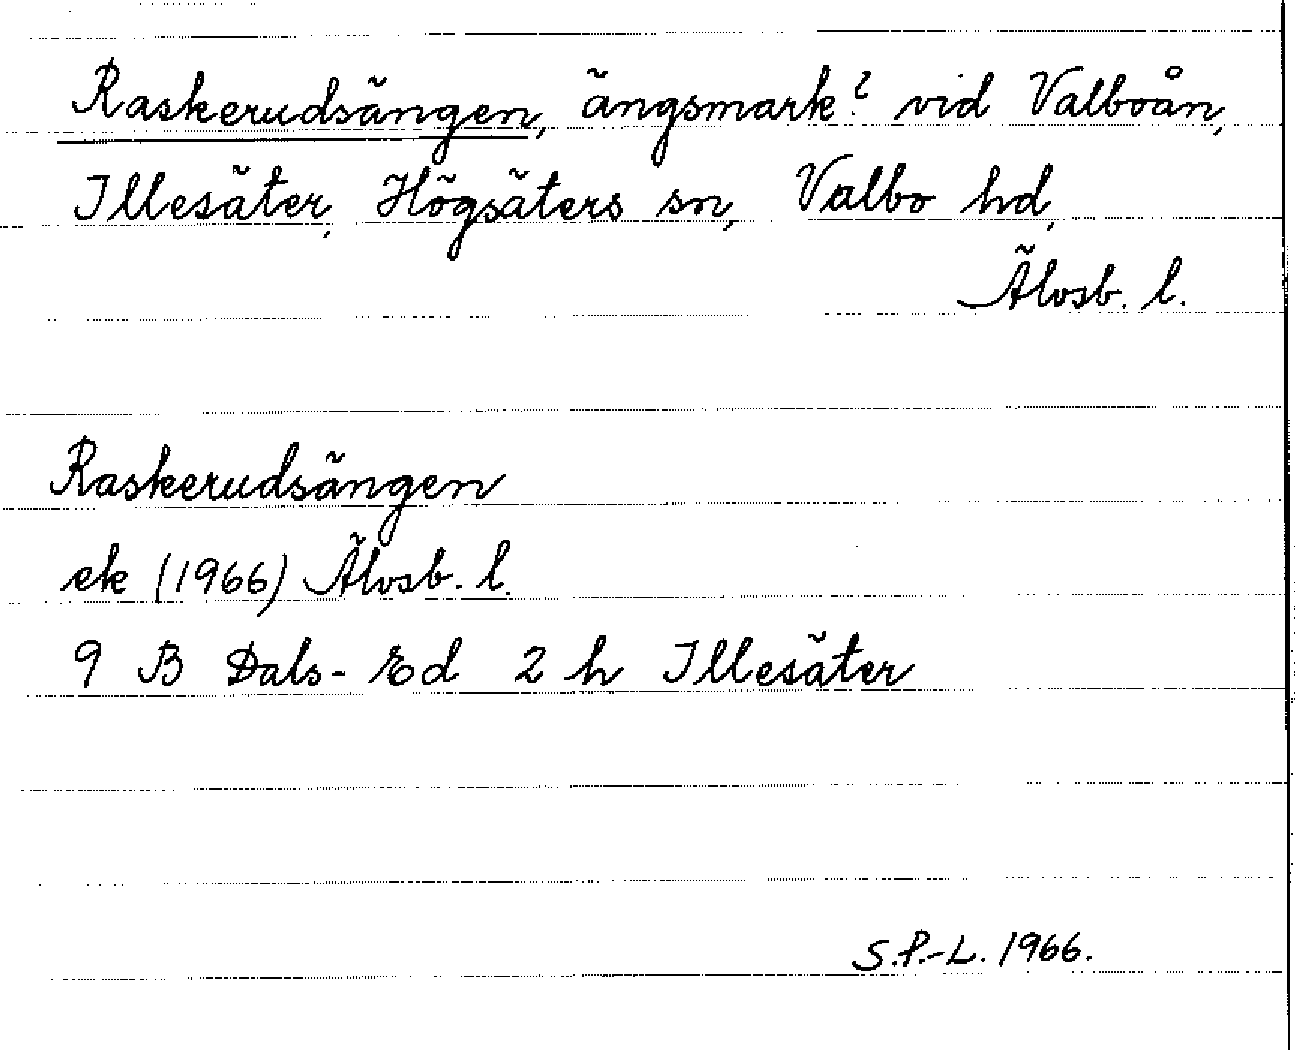 Raskerudsängen, ängsmark? vid Valboån,
Illesäter, Högsäters sn, Valbo hd,
Älvsb. l.
Raskerudsängen
ek (1966) Älvsb. l.
9 B Dals-Ed 2 h Illesäter
S.P.-L. 1966.